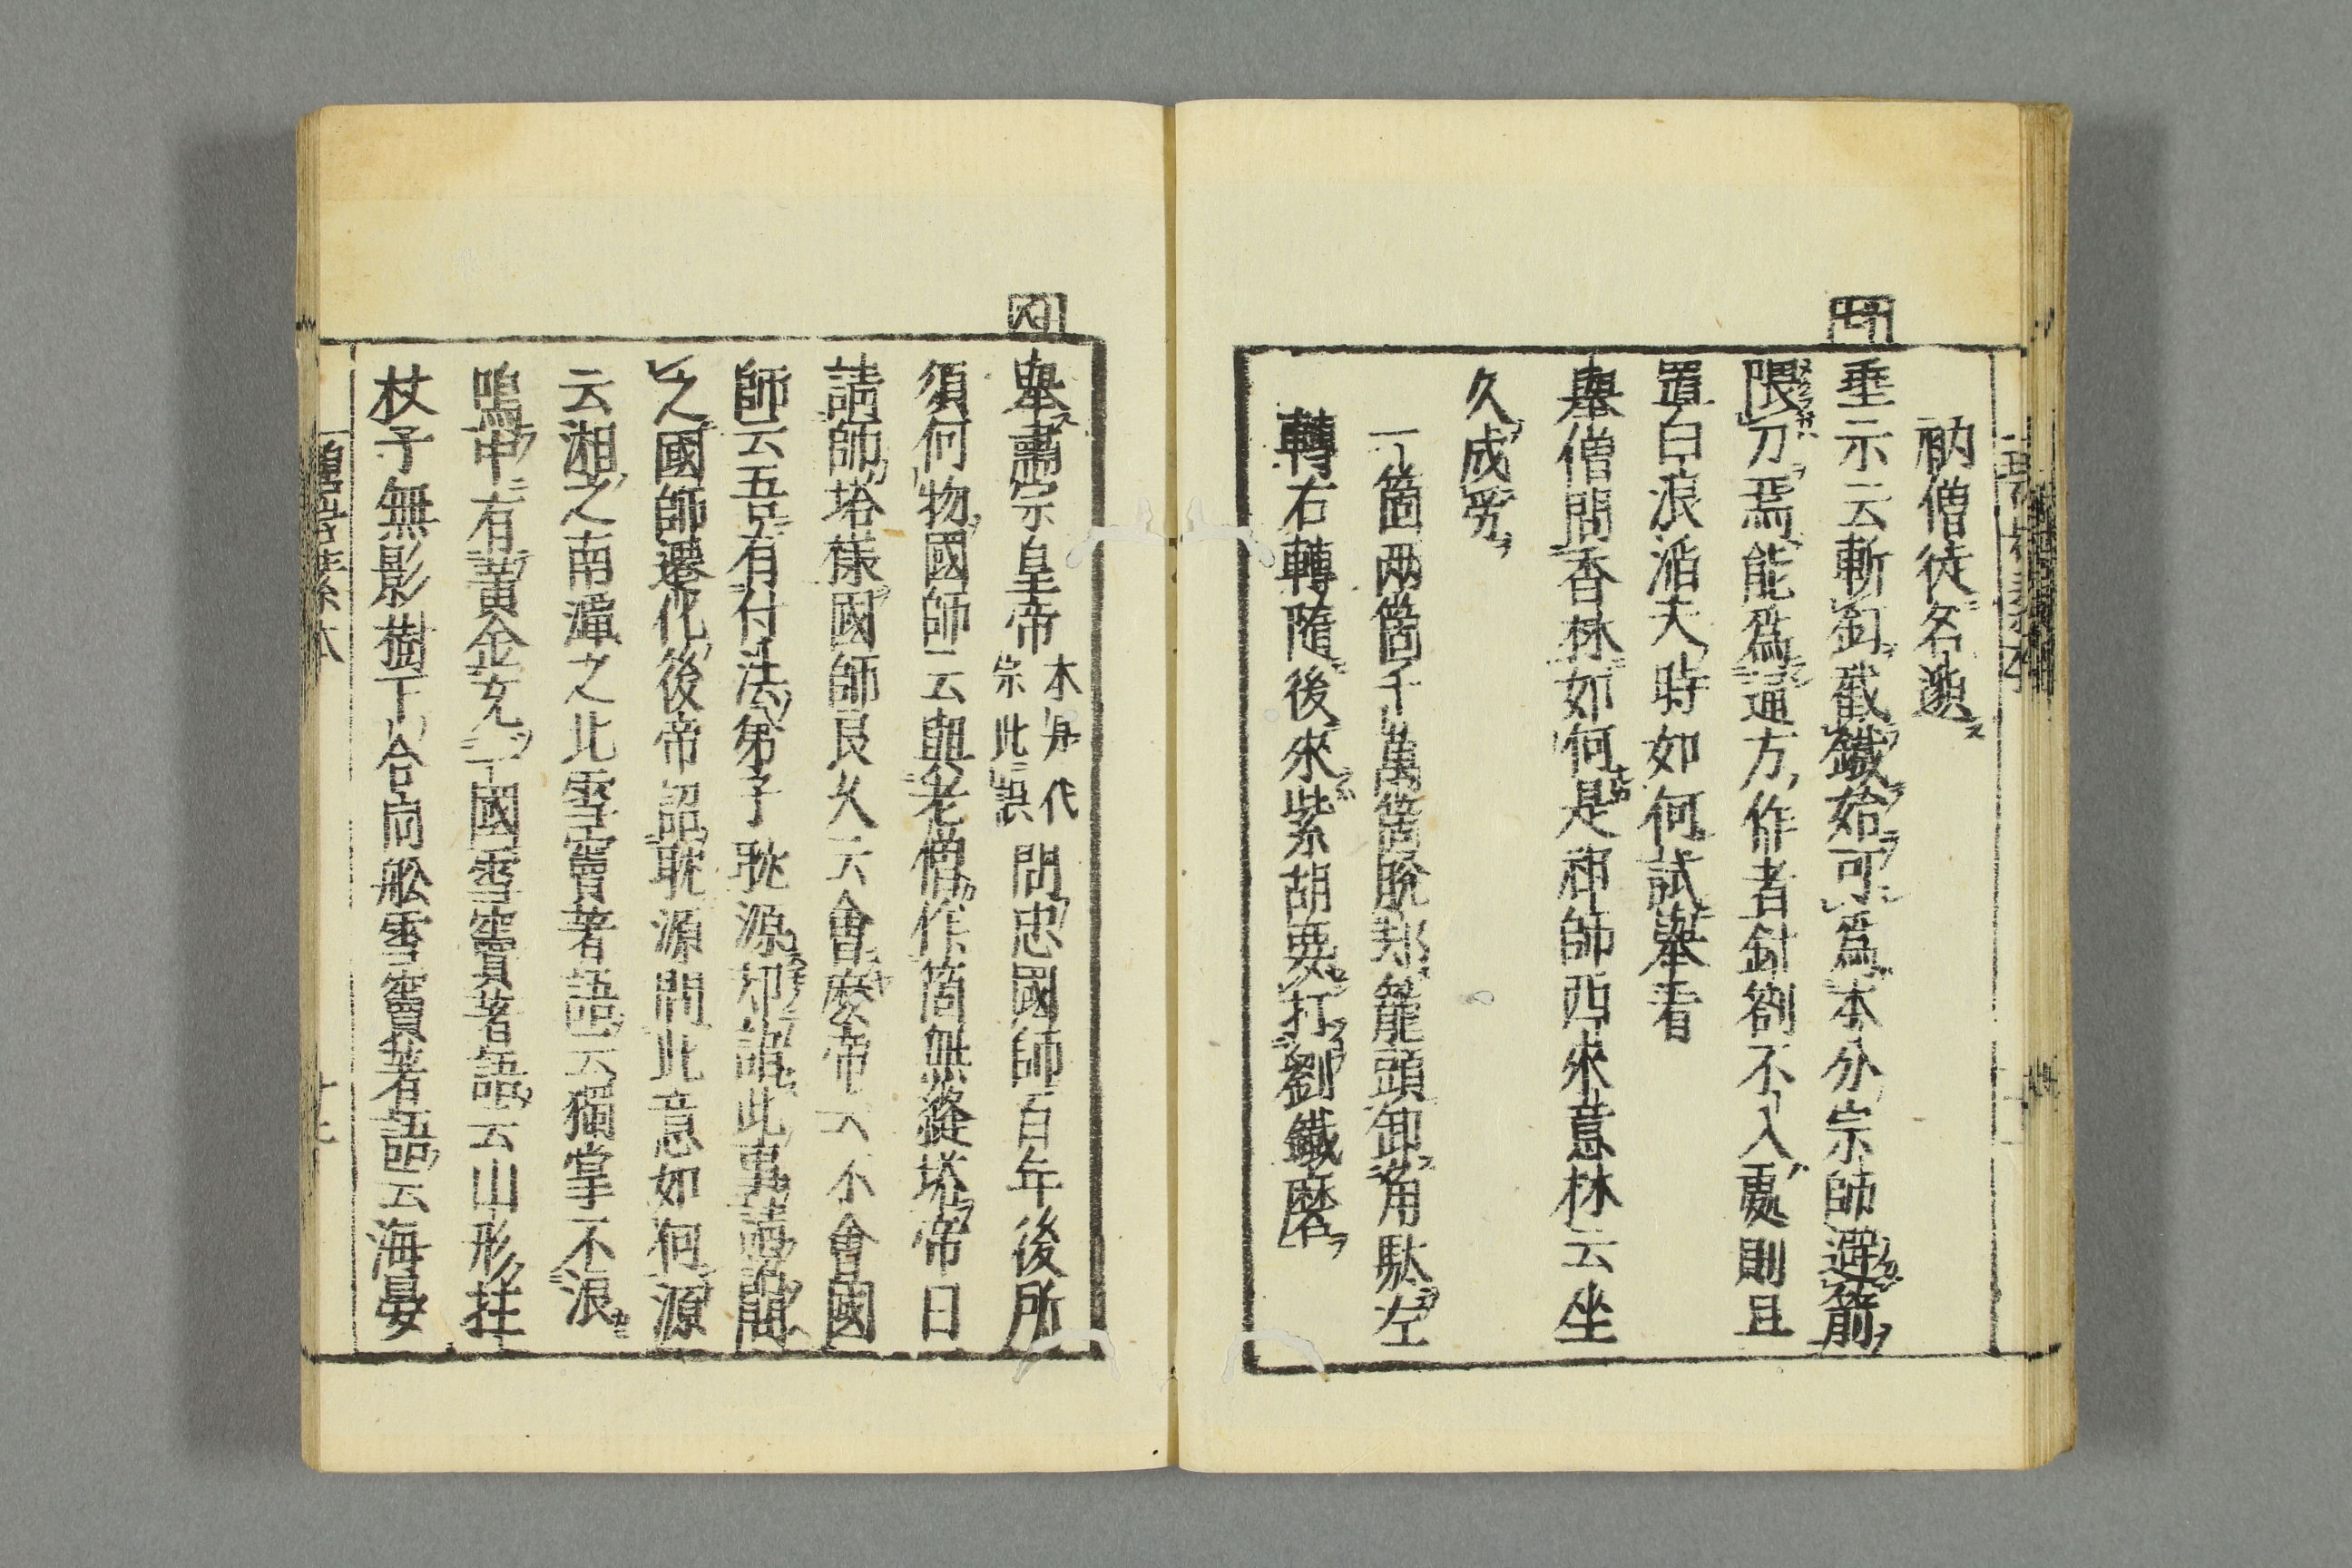 衲僧徒名邈
垂示云斬釘截鐵始可爲本分宗師避箭
隈刀焉能爲通方作者針劄不入處則且
置白浪滔天時如何試舉看
舉僧問香林如何是祖師西來意林云坐
久成勞
一箇兩箇千萬箇脫却籠頭卸角駄左
轉右轉隨後來紫胡要打劉鐵磨
舉肅宗皇帝
本是代
宗此誤
問忠國師百年後所
須何物國師云與老僧作箇無縫塔帝曰
請師塔樣國師良久云會麼帝云不會國
師云吾有付法弟子耽源却諳此事請詔問
之國師遷化後帝詔耽源問此意如何源
云湘之南潭之北雪竇著語云獨掌不浪
鳴中有黃金充一國雪竇著語云山形拄
杖子無影樹下合同舩雪竇著語云海晏